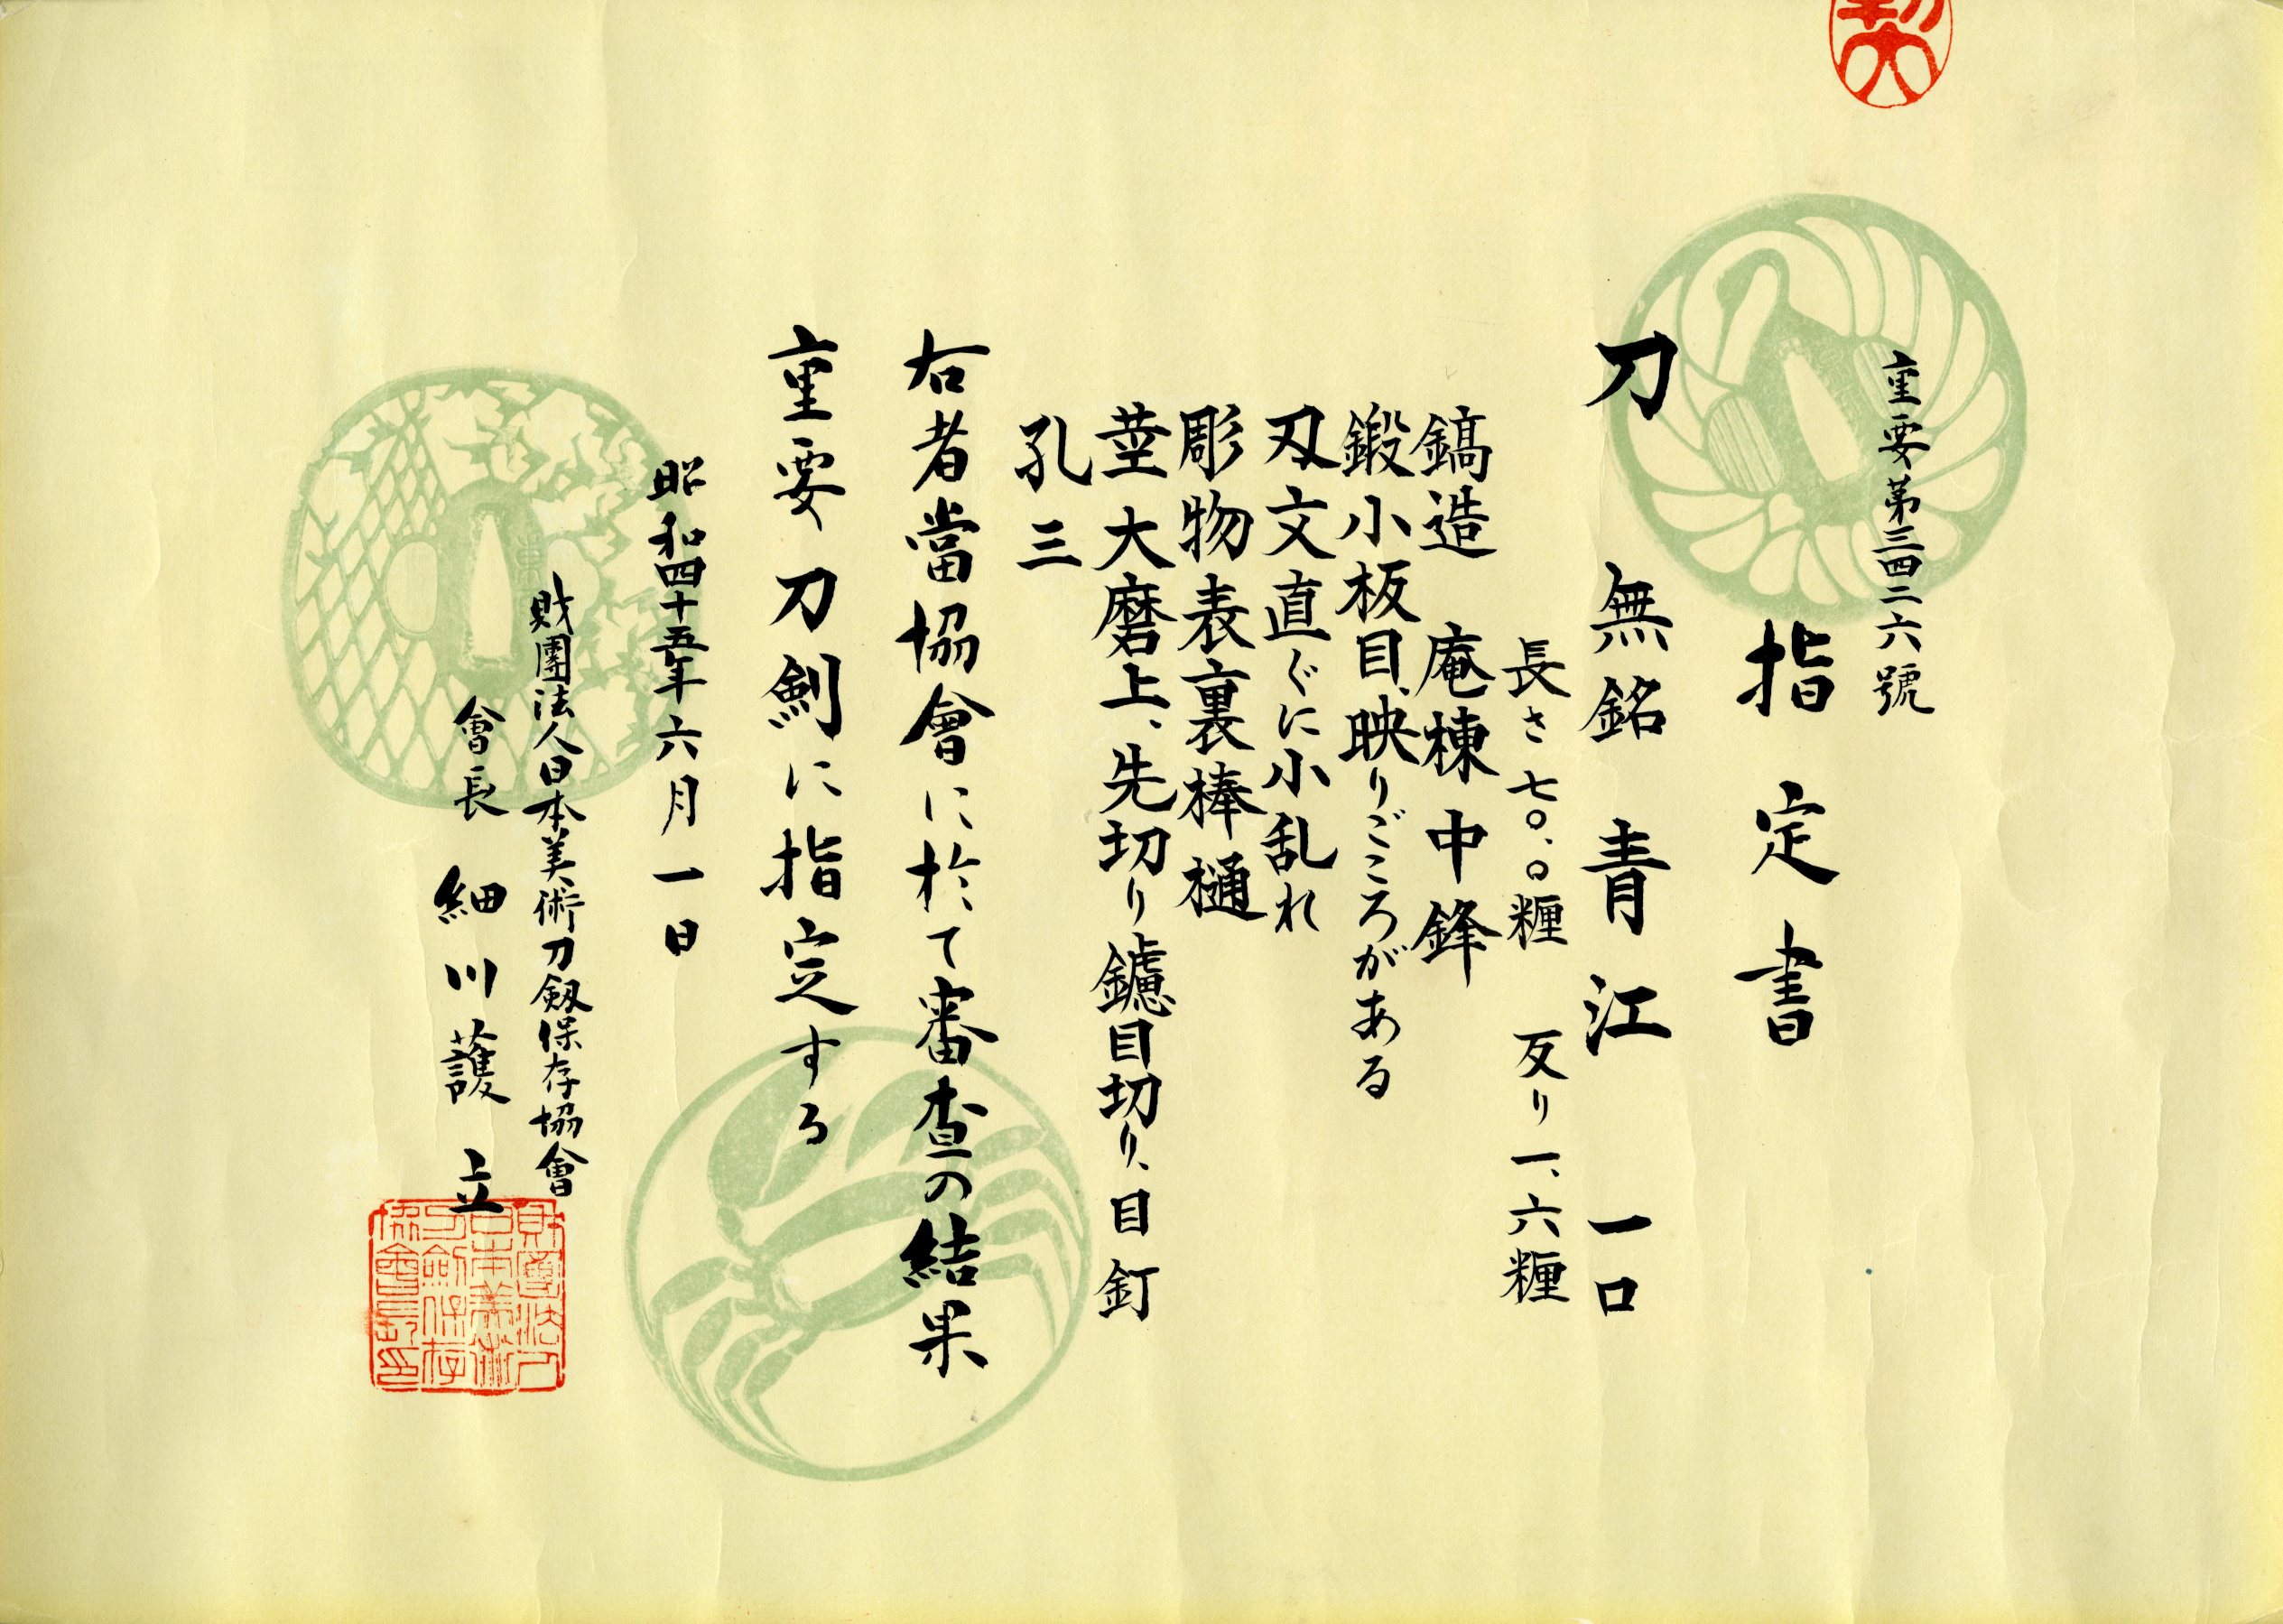 重要第三四二六號
指定書
刀 無銘 青江 一口
長さ七〇、〇糎 反り一、六糎
鎬造 庵棟 中鋒
鍛小板目、映りごころがある
刄文直ぐに小乱れ
彫物表裏棒樋
莖大磨上、先切り鑢目切り、目釘
孔三
右者當協會に於て審査の結果
重要刀剣に指定する
昭和四十五年六月一日
財團法人日本美術刀剱保存協會
會長 細川護立
財團法人日本美術刀劍保存協會長印